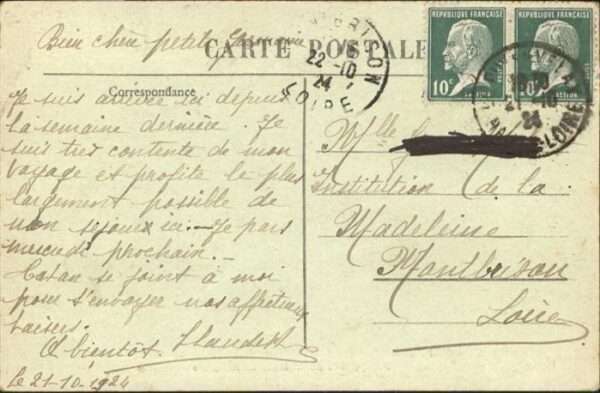 Bien chère petite
CARTE POSTALE
Correspondance
Je suis arrivée ici depuis
la semaine dernière. Je
suis très contente de mon
voyage et profite le plus
largement possible de
mon séjour ici. — Je pars
mercredi prochain. —
se joint à moi
pour t'envoyer nos affectueux
baisers.
A bientôt.
le 21-10-1924
BRISON
22-10
24
LOIRE
REPUBLIQUE FRANÇAISE
10c
REPUBLIQUE FRANÇAISE
10
-10
24
LOIRE
Mlle
Institution de la
Madeleine
Montbrison
Loire